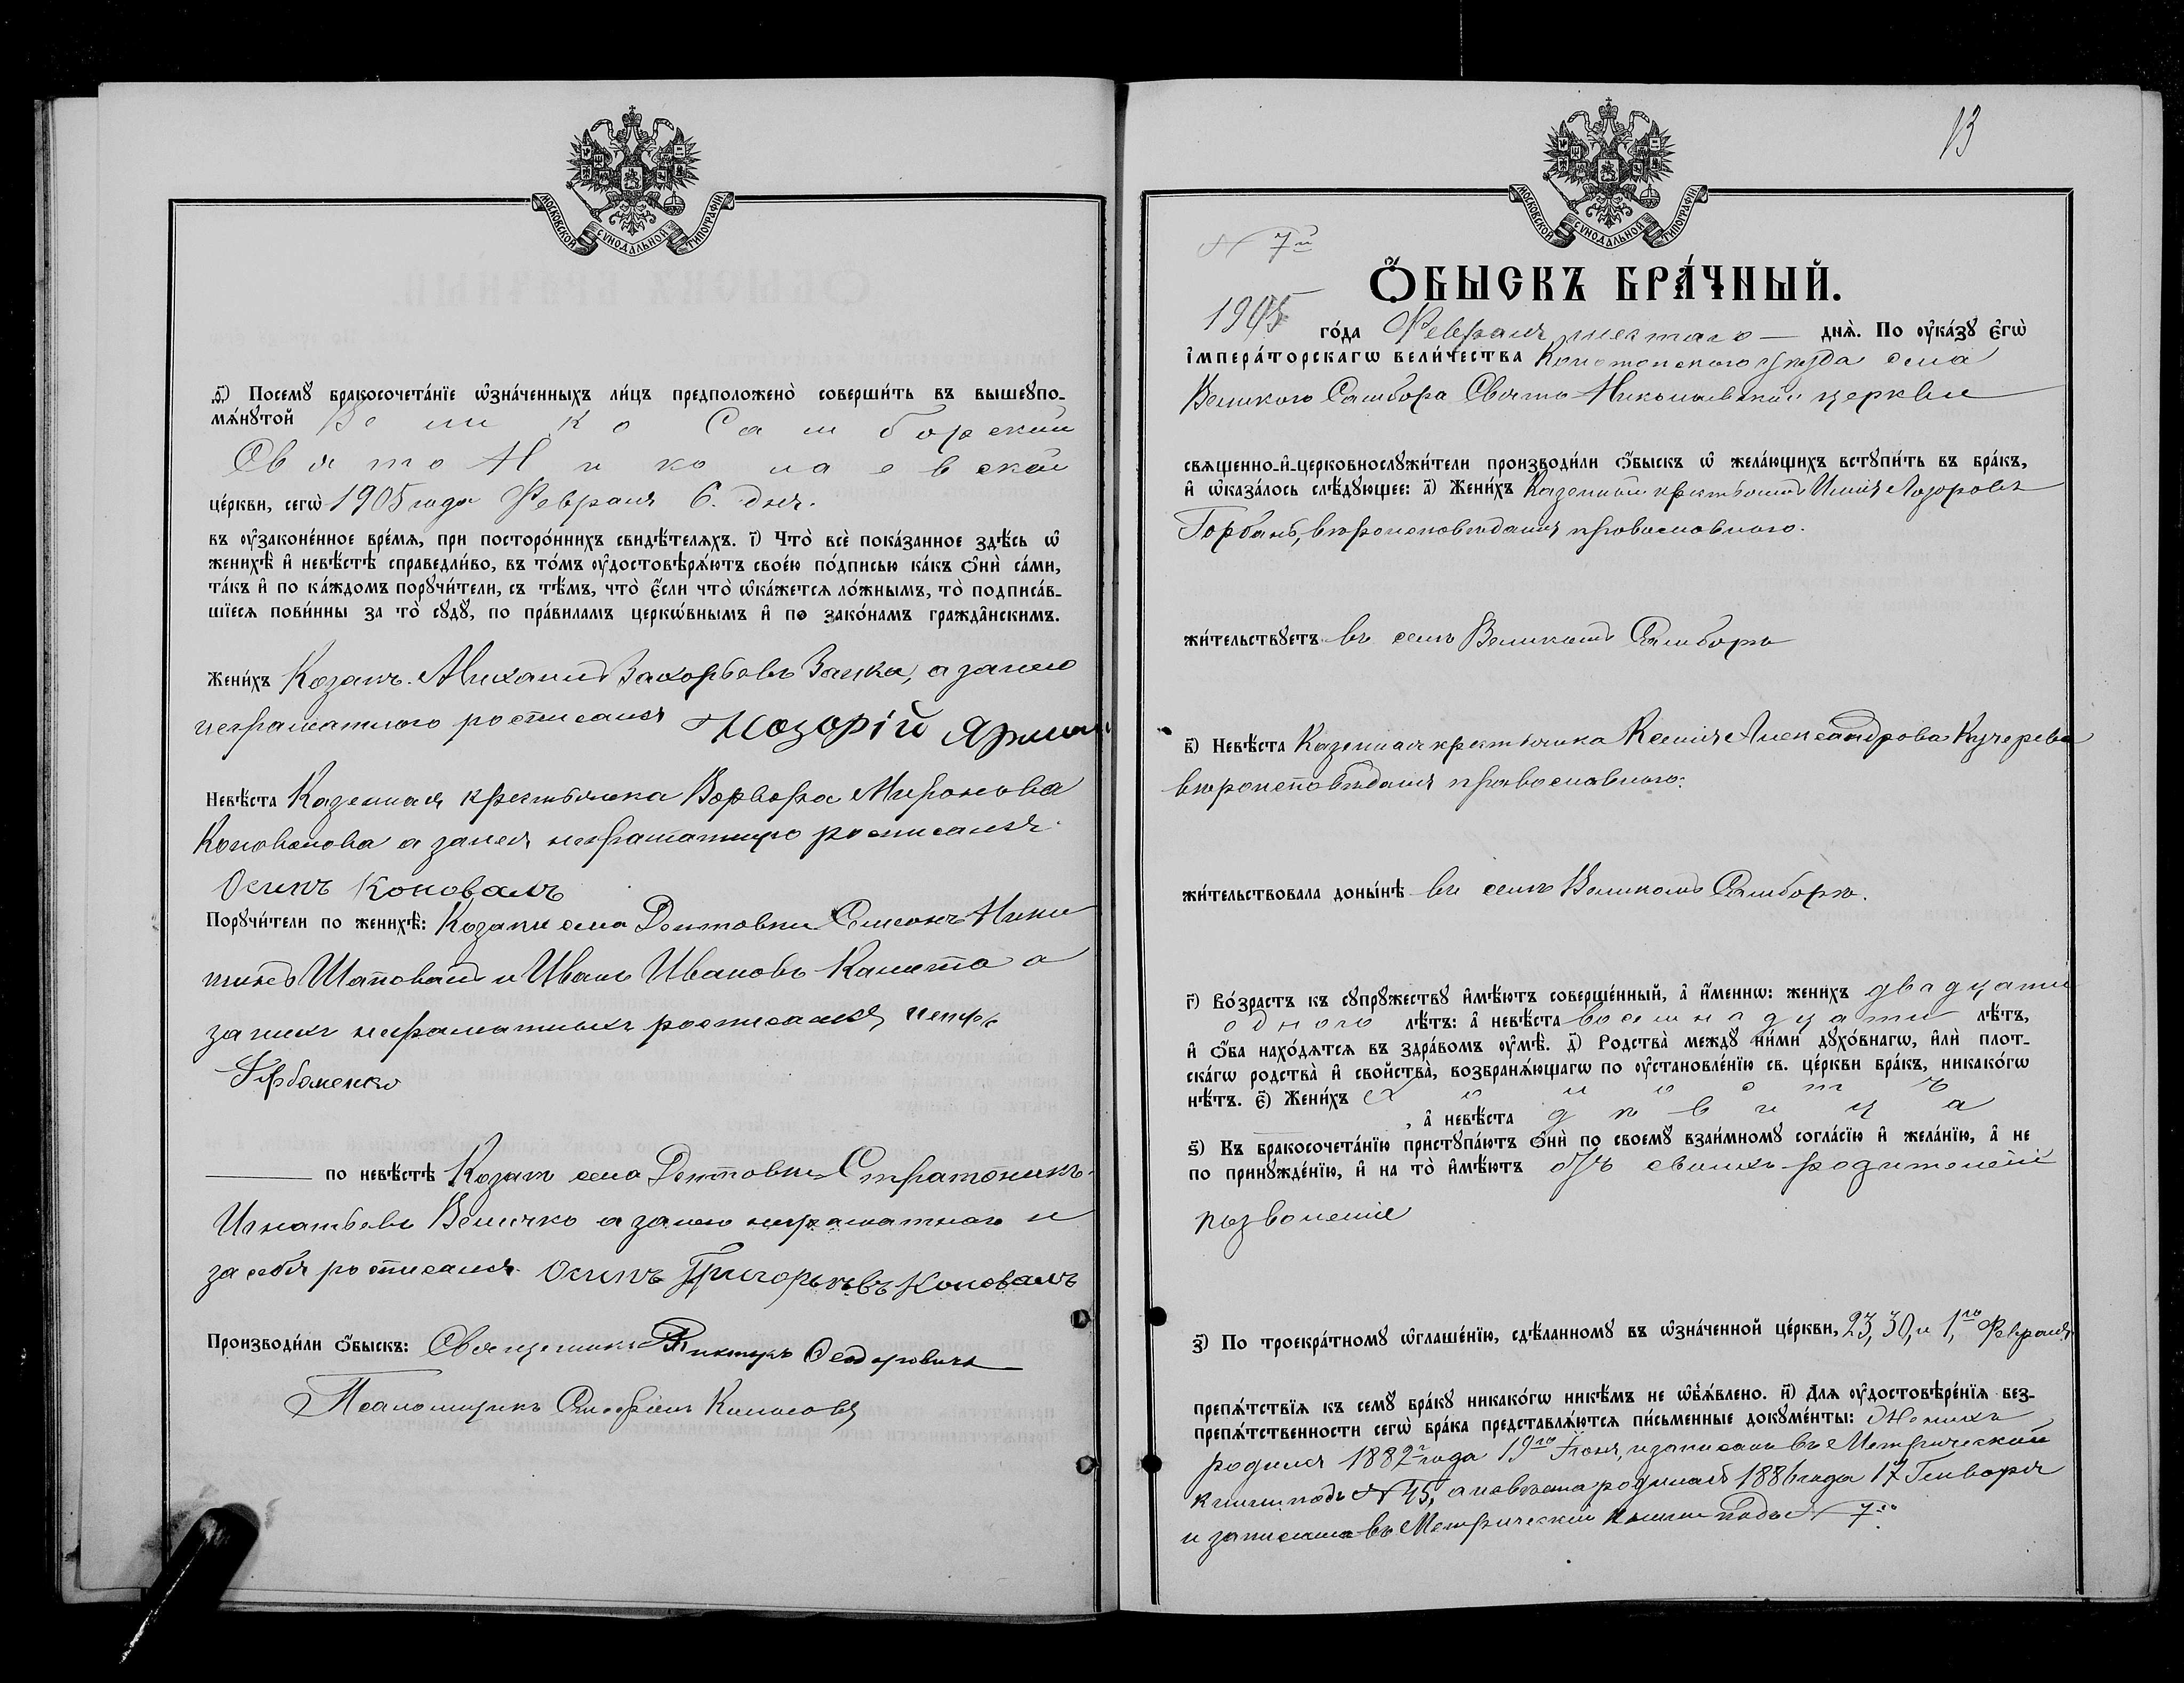 МОСКОВСКОЙ СѴНОДАЛЬНОЙ ТИПОГРАФІИ
ѳ҃) Посемꙋ бракосочета́нїе ѡ҆зна́ченныхъ ли́цъ предположено̀ соверши́ть въ вышеꙋпо-
мѧ́нꙋтой Велико Самборской
Свято Николаевской
це́ркви, сегѡ̀ 1905 года Февраля 6. дня.
въ ᲂу҆законе́нное вре́мѧ, при посторо́ннихъ свидѣ́телѧхъ. і҃) Что̀ всѐ пока́занное здѣ́сь ѡ҆
женихѣ̀ и҆ невѣ́стѣ справедли́во, въ то́мъ ᲂу҆достовѣрѧ́ютъ свое́ю по́дписью ка́къ ѻ҆нѝ са́ми,
та́къ и҆ по ка́ждомъ порꙋчи́тели, съ тѣ́мъ, что̀ є҆́сли что̀ ѡ҆ка́жетсѧ ло́жнымъ, то̀ подписа́в-
шїесѧ пови́нны за то̀ сꙋдꙋ̀, по пра́виламъ церко́внымъ и҆ по зако́намъ гражда̂нскимъ.
Жени́хъ Козакъ Михаилъ Захорьевъ Заика, а занего
неграматного росписался Назорій Ярмак
Невѣ́ста Казенная крестьянка Ворвора Миронова
Коновалова а занея неграматную росписался
Осипъ Коновалъ
Порꙋчи́тели по женихѣ̀: Козаки села Дептовки Симеонъ Ники
тинъ Шаповалъ и Иванъ Ивановъ Калита а
за нихъ неграматныхъ росписался Петръ
Горбаненко
по невѣ́стѣ Козакъ села Дептовки Стратоникъ
Игнатьевъ Величко а занего неграматного и
за себя росписался Осипъ Григорьевъ Коновалъ
Производи́ли ѻ҆́быскъ: Священникъ Викторъ Ѳедоровичъ
Псаломщикъ
13
МОСКОВСКОЙ СѴНОДАЛЬНОЙ ТИПОГРАФІИ
N 7й
Ѻ҆́БЫСКЪ БРА́ЧНЫЙ.
1905 го́да Февраля шестаго днѧ̀. По ᲂу҆ка́зꙋ є҆гѡ̀
і҆мпера́торскагѡ вели́чества Конотопского уезда села
Великого Самбора Свято Николаевской церкви
свѧщенно-и҆-церковнослꙋжи́тели производи́ли ѻ҆́быскъ ѡ҆ жела́ющихъ встꙋпи́ть въ бра́къ,
и҆ ѡ҆каза́лось слѣ́дꙋющее: а҃) Жени́хъ Казенный крестьянинъ Илия Лазоровъ
Горбань, вероисповедания провославного.
жи́тельствꙋетъ въ селе Великомъ Самборе
в҃) Невѣ́ста Казенная крестьянка Ксения Александрова Кучерева
вероисповедания провославного.
жи́тельствовала доны́нѣ въ селе Великомъ Самборе.
г҃) Во́зрастъ къ сꙋпрꙋ́жествꙋ и҆мѣ́ютъ соверше́нный, а҆ и҆́меннѡ: жени́хъ двадцати
одного лѣ́тъ: а҆ невѣ́ста восемнадцати лѣ́тъ,
и҆ ѻ҆́ба нахо́дѧтсѧ въ здра́вомъ ᲂу҆мѣ̀. д҃) Родства̀ междꙋ̀ ни́ми дꙋхо́внагѡ, и҆лѝ плот-
ска́гѡ родства̀ и҆ сво́йства̀, возбранѧ́ющагѡ по ᲂу҆становле́нїю св. це́ркви бра́къ, никако́гѡ
нѣ́тъ. є҃) Жени́хъ холостъ
, а҆ невѣ́ста девица
ѕ҃) Къ бракосочета́нїю пристꙋпа́ютъ ѻ҆нѝ по своемꙋ̀ взаи́мномꙋ согла́сїю и҆ жела́нїю, а҆ не
по принꙋжде́нїю, и҆ на то̀ и҆мѣ́ютъ отъ своихъ родителей
позволение
з҃) По троекра́тномꙋ ѡ҆глаше́нїю, сдѣ́ланномꙋ въ ѡ҆зна́ченной це́ркви, 23, 30, и 1,го Февраля
препѧ́тствїѧ къ семꙋ̀ бра́кꙋ никако́гѡ никѣ́мъ не ѡ҆б̾ѧ́влено. и҃) Длѧ ᲂу҆достовѣре́нїѧ без-
препѧ́тственности сегѡ̀ бра́ка представлѧ́ютсѧ пи́сьменные докꙋме́нты: Женихъ
родился 1882 года 19го Іюня, и записанъ въ Метрической
книги подъ N 45, а невеста родилась 1886 года 17 Генваря
и записана въ Метрически книги подъ N 7.